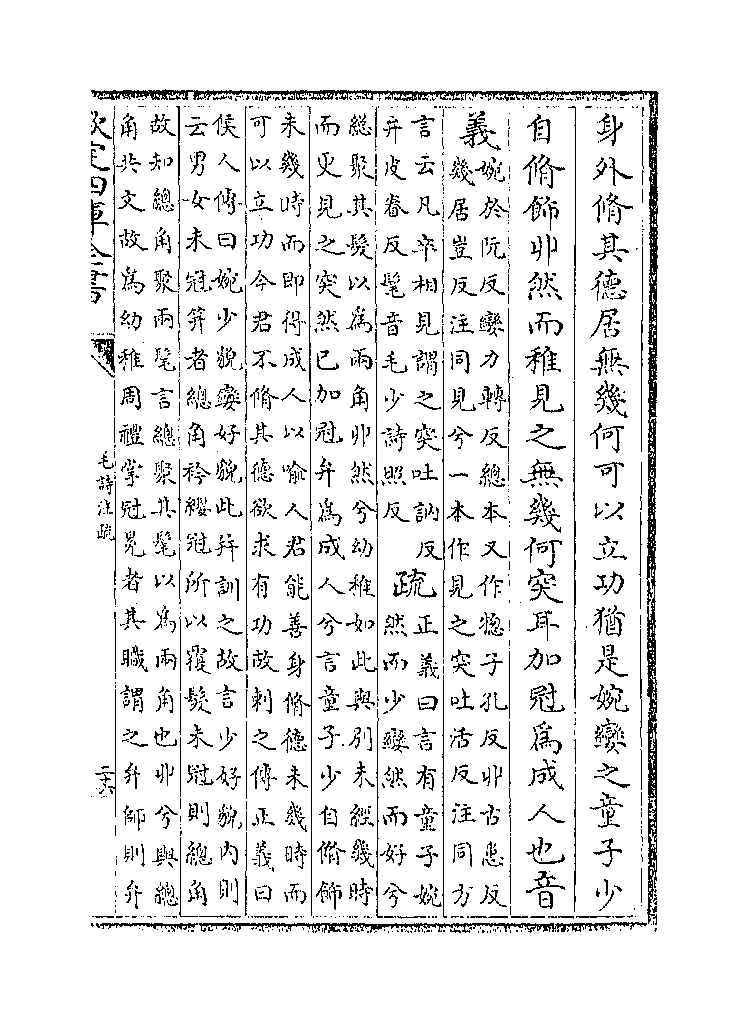 身外脩其德居無幾何可以立功猶是婉孌之童子少
自脩飾丱然而稚見之無幾何突耳加冠爲成人也音
義婉於阮反孌力轉反總本又作揔子孔反丱古患反
幾居豈反注同見兮一本作見之突吐活反注同方
言云凡卒相見謂之突吐訥反
弁皮眷反髦音毛少詩照反
疏正義曰言有童子婉
然而少孌然而好兮
總聚其髮以爲兩角丱然兮幼稚如此與別未經幾時
而更見之突然已加冠弁爲成人兮言童子少自脩飾
未幾時而即得成人以喻人君能善身脩德未幾時而
可以立功今君不脩其德欲求有功故刺之傳正義曰
候人傳曰婉少貌孌好貌此并訓之故言少好貌內則
云男女未冠笄者總角衿纓冠所以覆髮未冠則總角
故知總角聚兩髦言總聚其髦以爲兩角也丱兮與總
角共文故爲幼稚周禮掌冠冕者其職謂之弁師則弁
欽定四庫全書
毛詩注疏
二十六